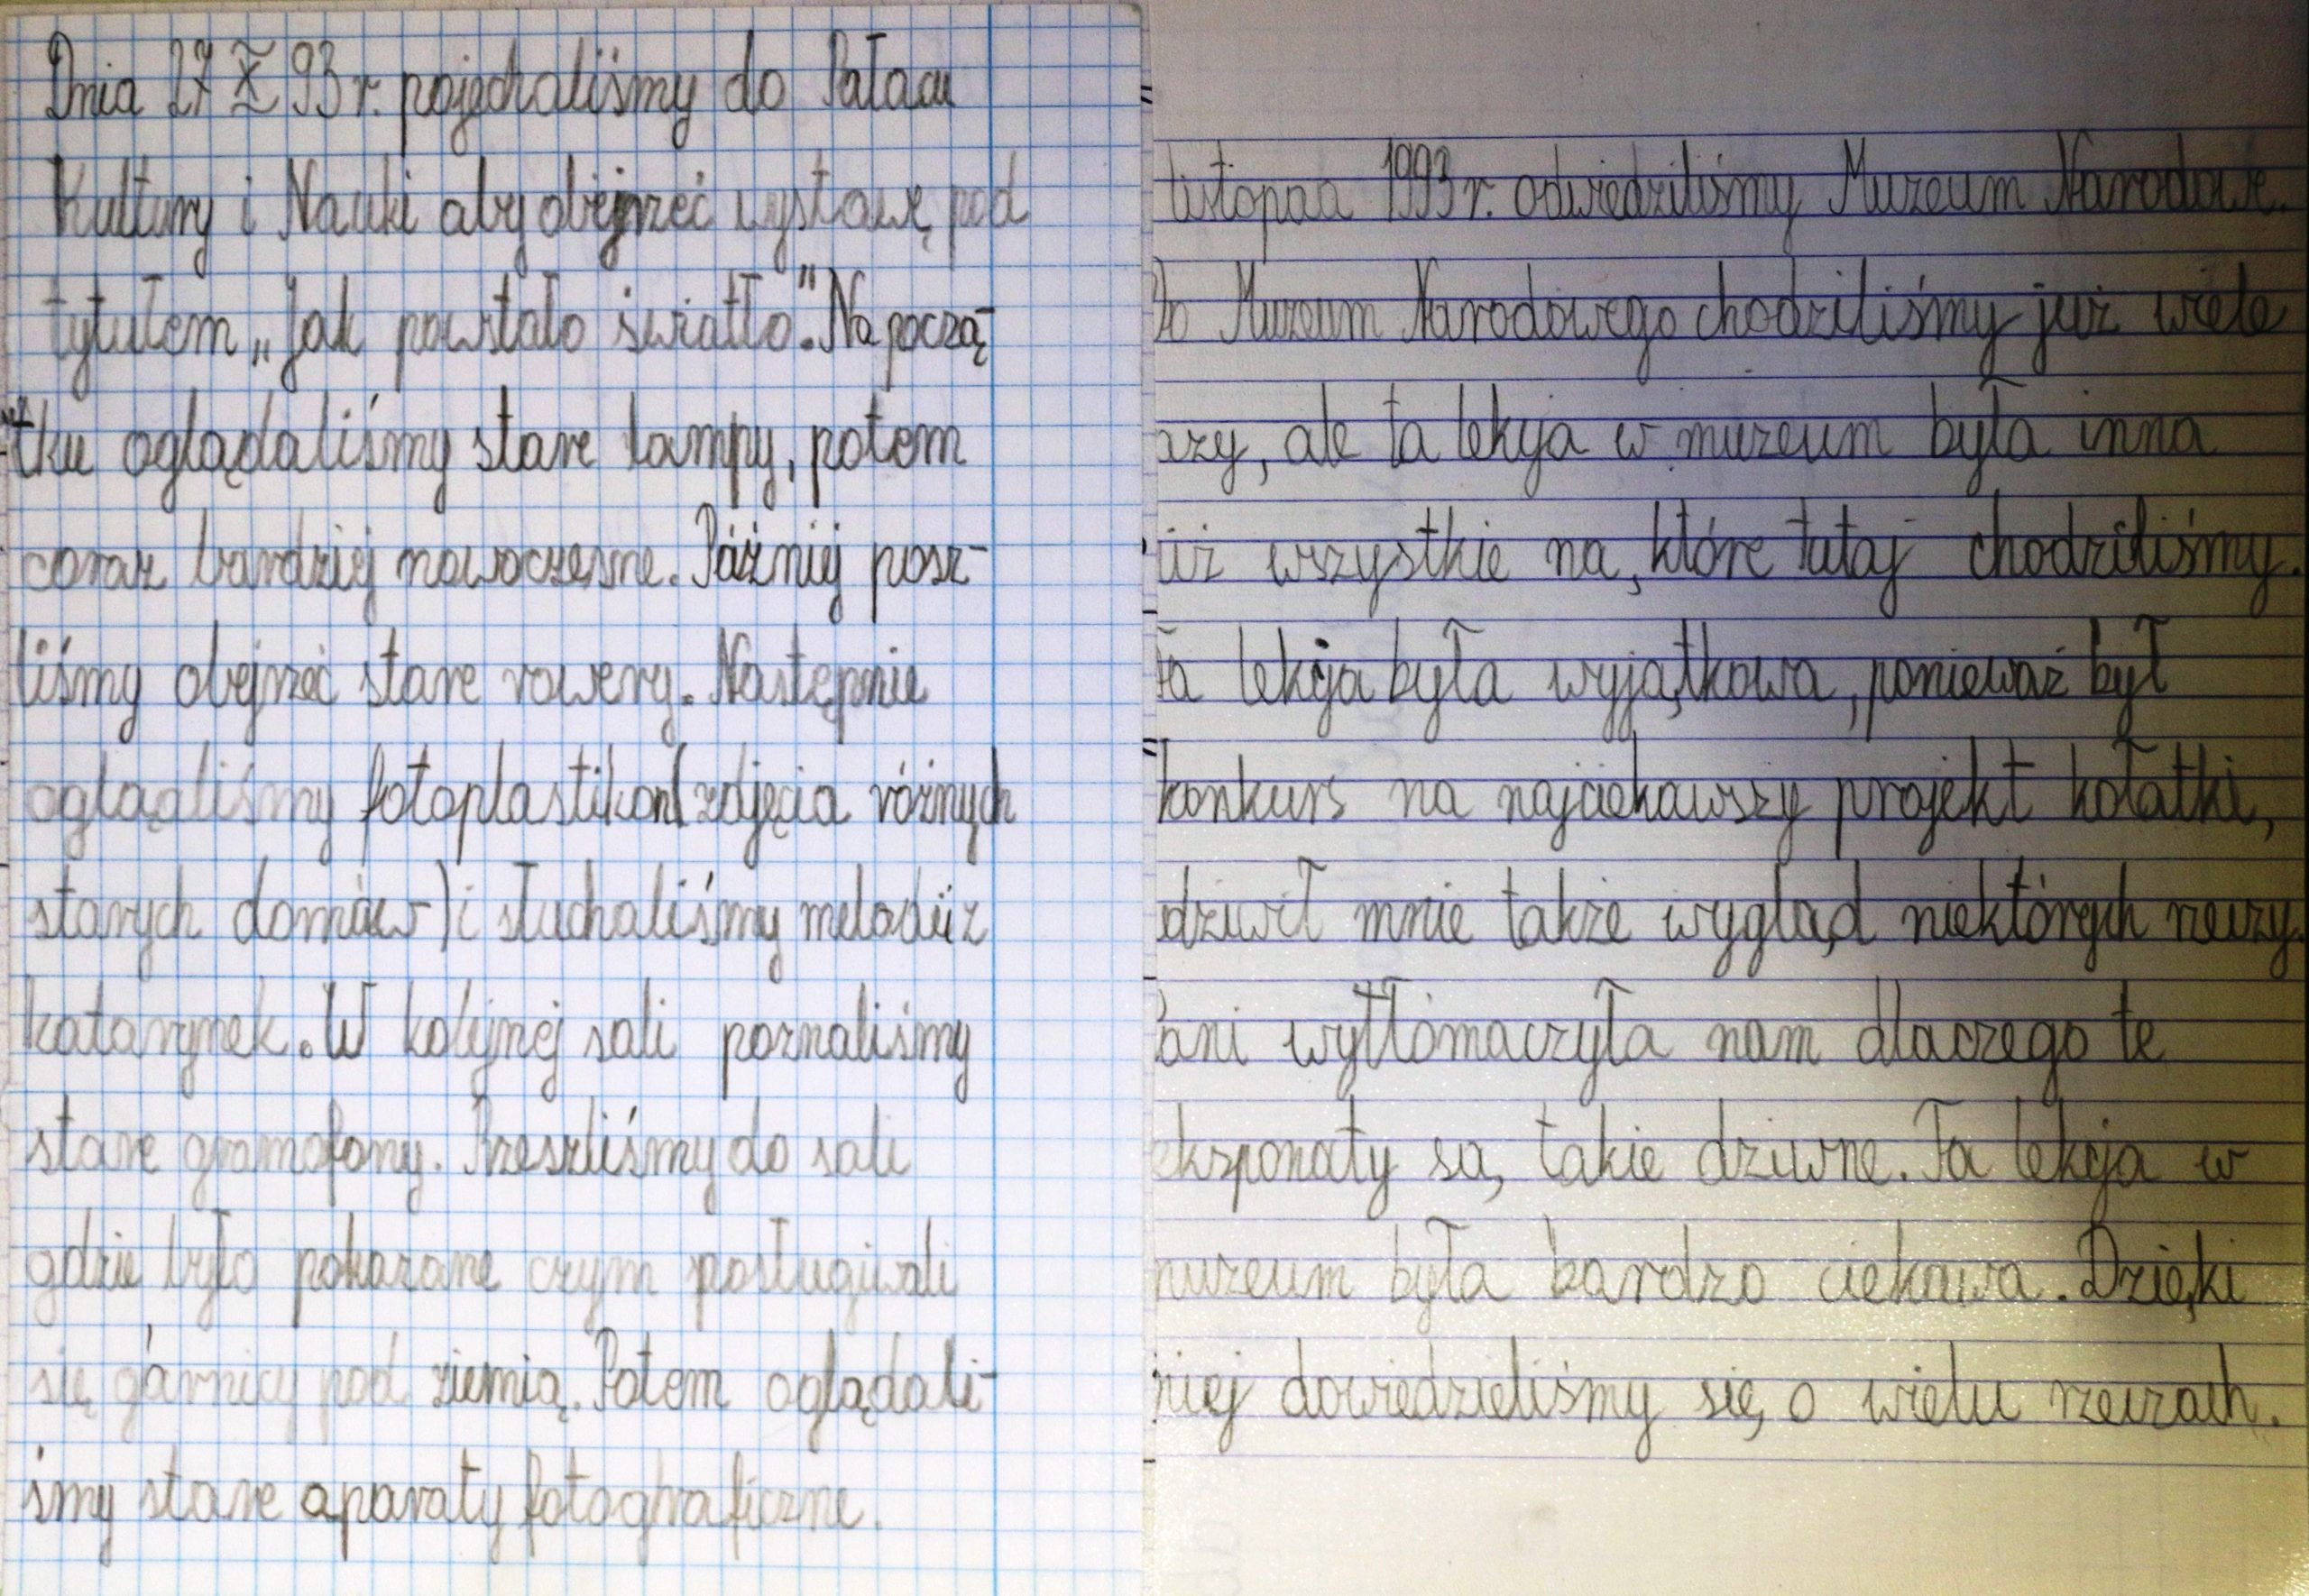 Dnia 27 X 93 r. pojechaliśmy do Pałacu
Kultury i Nauki aby obejrzeć wystawę pod
tytułem „Jak powstało światło". Na począ-
tku oglądaliśmy stare lampy, potem
coraz bardziej nowoczesne. Później posz-
liśmy obejrzeć stare rowery. Następnie
oglądaliśmy fotoplastikon (zdjęcia różnych
starych domów) i słuchaliśmy melodii z
katarynek. W kolejnej sali poznaliśmy
stare gramofony. Przeszliśmy do sali
gdzie było pokazane czym posługiwali
się górnicy pod ziemią. Potem oglądali-
śmy stare aparaty fotograficzne.
listopada 1993 r. odwiedziliśmy Muzeum Narodowe.
Do Muzeum Narodowego chodziliśmy już wiele
azy, ale ta lekcja w muzeum była inna
iż wszystkie na, które tutaj chodziliśmy.
Ta lekcja była wyjątkowa, ponieważ był
konkurs na najciekawszy projekt kołatki,
dziwił mnie także wygląd niektórych rzeczy.
ani wytłómaczyła nam dlaczego te
eksponaty są takie dziwne. Ta lekcja w
muzeum była bardzo ciekawa. Dzięki
niej dowiedzieliśmy się o wielu rzeczach.